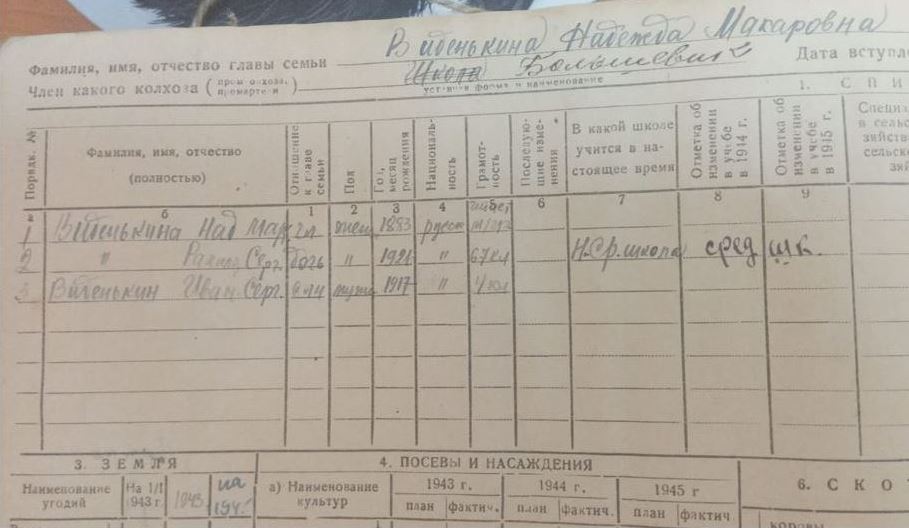 Виденькина Надежда Макаровна
Фамилия, имя, отчество главы семьи
Дата вступле
Школа Большевик
Член какого колхоза (пром.колхоза, промартели)
уставная форма и наименование
1. СПИ
Порядк. №
Фамилия, имя, отчество (полностью)
Отношение к главе семьи
Пол
Год, месяц рождения
Националь-ность
Грамот-ность
Последую-щие изме-нения
В какой школе учится в на-стоящее время
Отметка об изменении в учебе в 1944 г.
Отметка об изменении в учебе в 1945 г.
Специ в сельс зяйств сельско зяй
б 1 2 3 4 5 6 7 8 9
1 Виденькина Над Мак гл. жен 1883 русск
2 " Серг. дочь " 1921 " 6-7 кл Н.Ср.школа сред шк.
3 Виденькин Иван Серг. сын муж 1917 " 4 кл
3. ЗЕМЛЯ
4. ПОСЕВЫ И НАСАЖДЕНИЯ
6. СКО
Наименование угодий
На 1/I 1943 г.
1943
на 194
а) Наименование культур
1943 г.
1944 г.
1945 г.
план фактич. план фактич. план фактич.
коровы